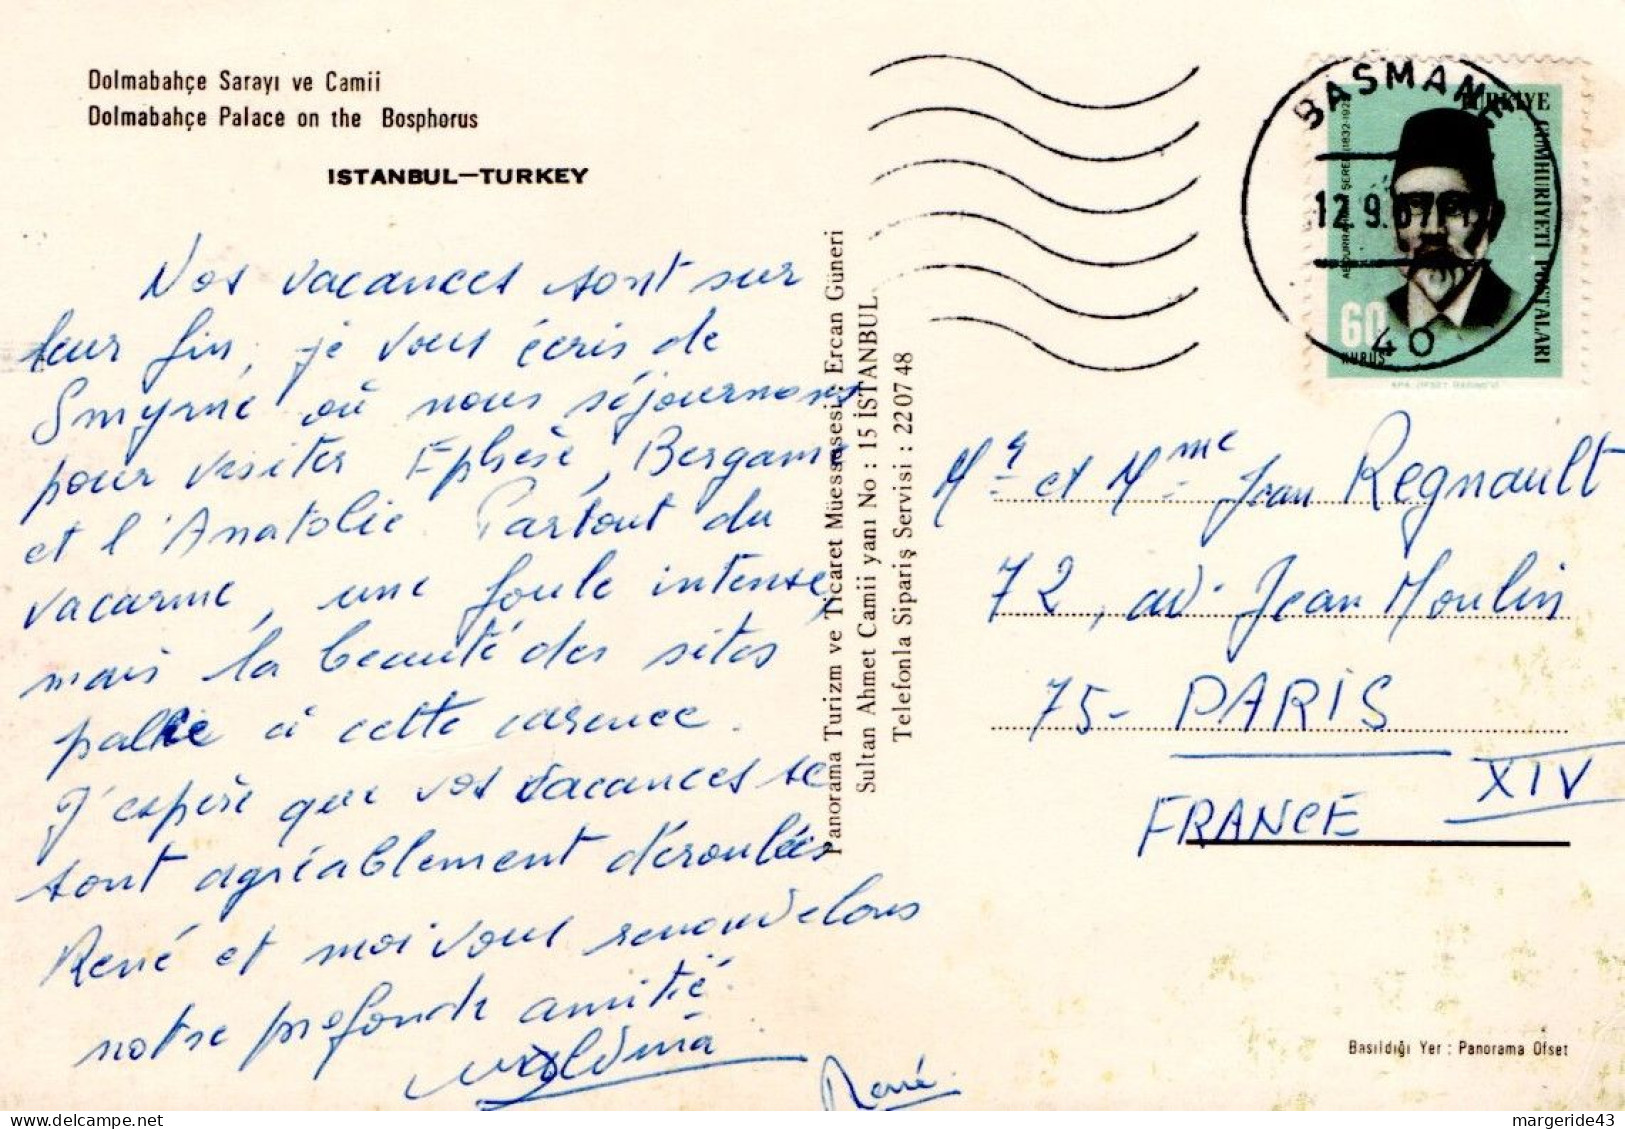 Dolmabahçe Sarayı ve Camii
Dolmabahçe Palace on the Bosphorus
ISTANBUL—TURKEY
Nos vacances sont sur
leur fin, je vous écris de
Smyrne où nous séjournons
pour visiter Ephèse, Bergame
et l'Anatolie. Partout du
vacarme, une foule intense,
mais la beauté des sites
pallie à cette carence.
J'espère que vos vacances se
sont agréablement déroulées
René et moi vous renouvelons
notre profonde amitié.
René
Panorama Turizm ve Ticaret Müessesesi: Ercan Güneri
Sultan Ahmet Camii yanı No : 15 İSTANBUL
Telefonla Sipariş Servisi : 22 07 48
BASMANE
12.9.67
40
TÜRKİYE CUMHURİYETİ POSTALARI
60
KURUŞ
Mr et Mme Jean Regnault
72, av. Jean Moulin
75- PARIS
XIV
FRANCE
Basıldığı Yer : Panorama Ofset
margeride43